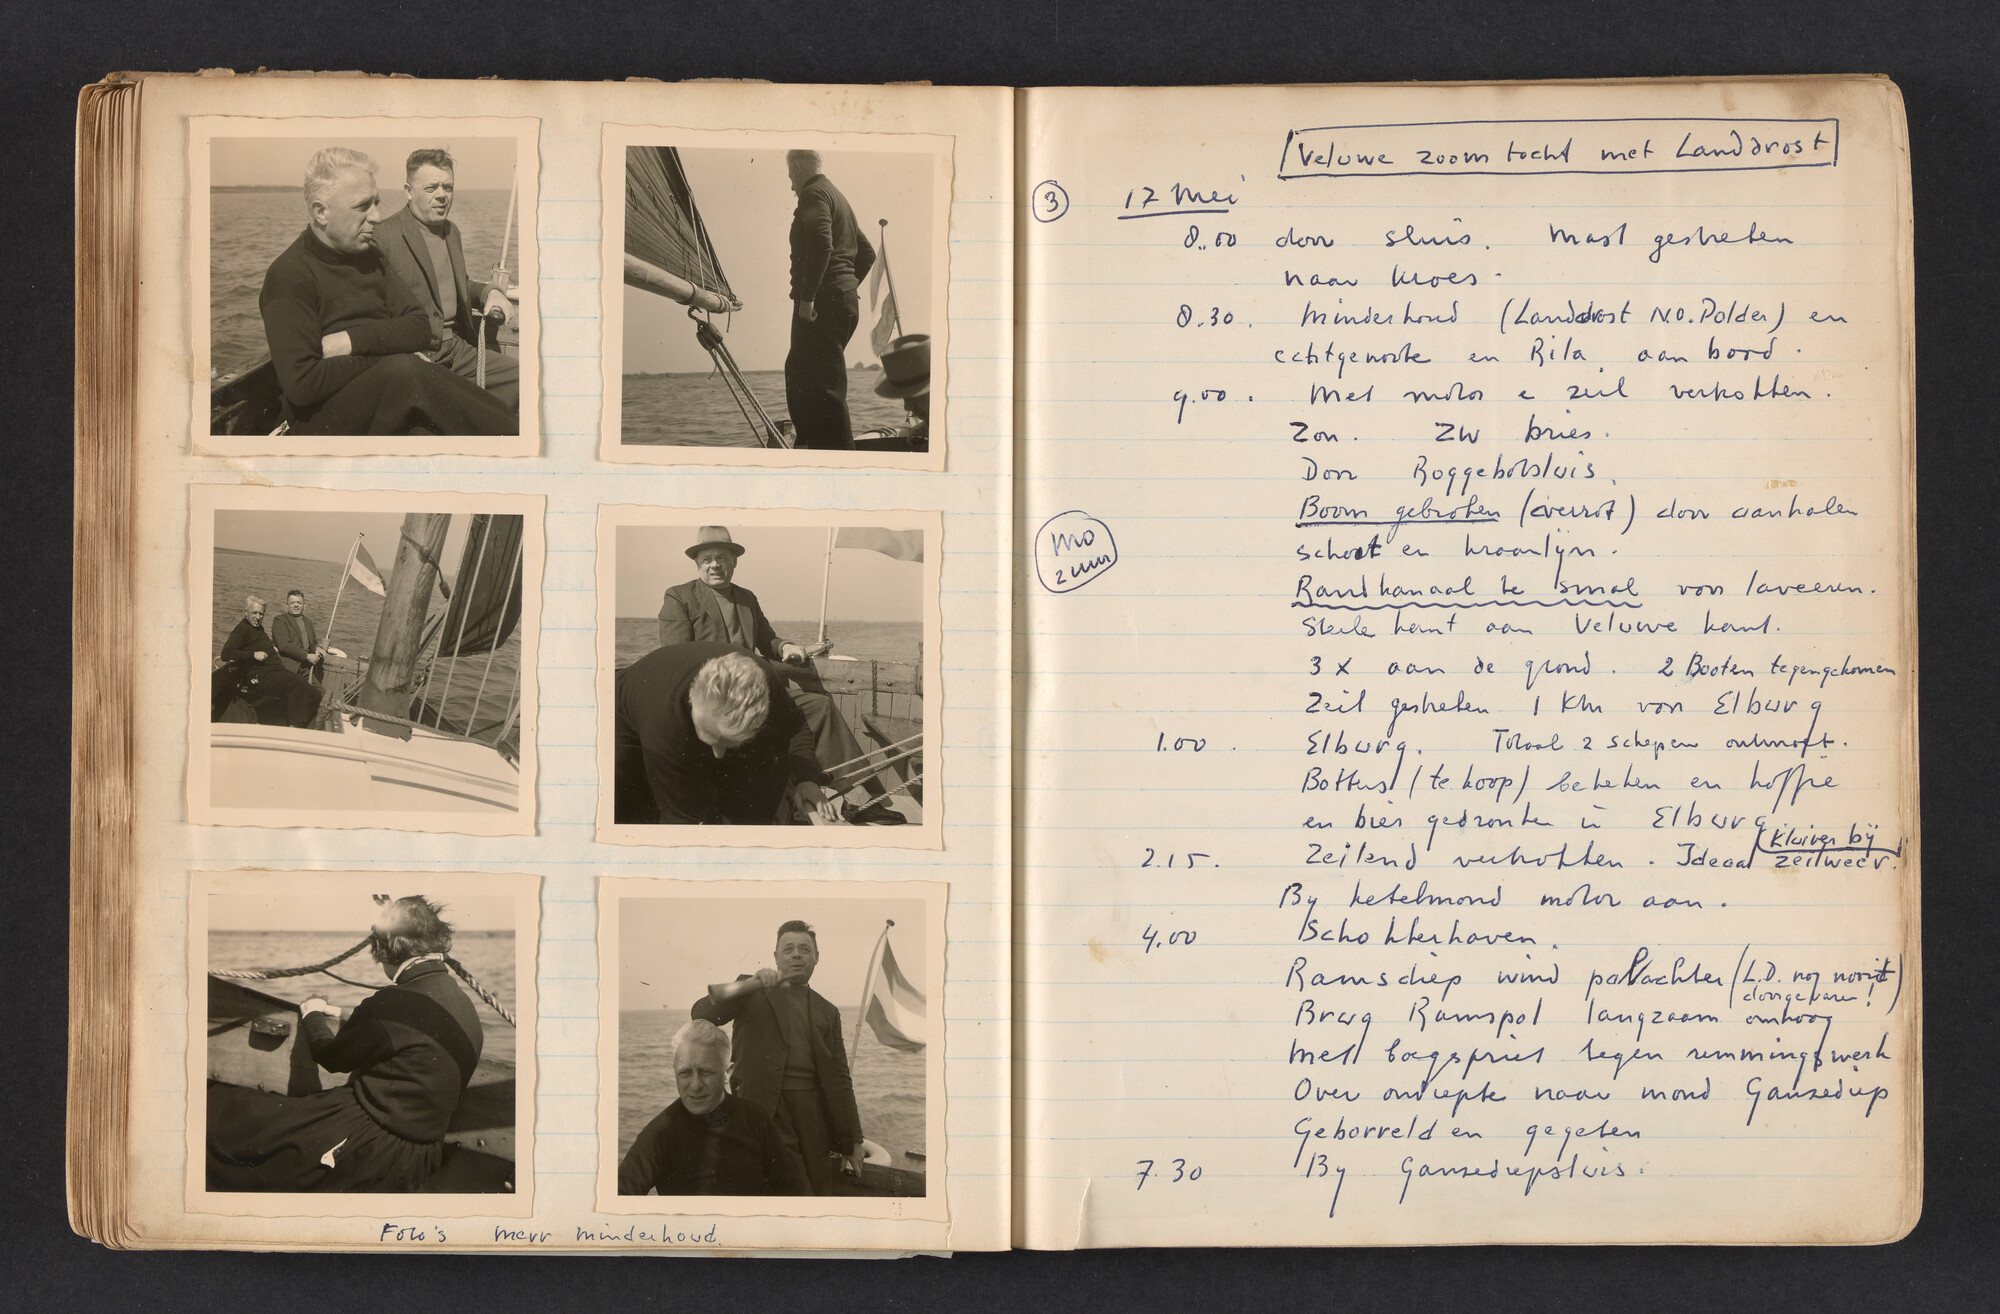 Foto's mevr Minderhoud.
Veluwe zoom tocht met Landdrost
3
17 Mei
8.00 door sluis. Mast gestreken
naar Kroes.
8.30. Minderhoud (Landdrost N.O. Polder) en
echtgenote en Rita aan boord.
9.00. Met motor e zeil vertrokken.
Zon. ZW bries.
Door Roggebotsluis.
Boom gebroken (verrot) door aanhalen
schoot en kraanlijn.
MO
2 uur
Randkanaal te smal voor laveeren.
Steile kant aan Veluwe kant.
3 x aan de grond. 2 Booten tegengekomen
Zeil gestreken 1 KM voor Elburg
1.00. Elburg. Totaal 2 schepen ontmoet.
Botters (te koop) bekeken en koffie
en bier gedronken in Elburg
Kluiver bij
2.15. Zeilend vertrokken. Ideaal zeilweer.
By Ketelmond motor aan.
4.00 Schokkerhaven.
Ramsdiep wind pal achter (L.D. nog nooit
doorgevaren!)
Brug Ramspol langzaam omhoog
Met boegspriet tegen remmingswerk
Over ondiepte naar mond Ganzediep
Geborreld en gegeten
7.30 By Ganzediepsluis.